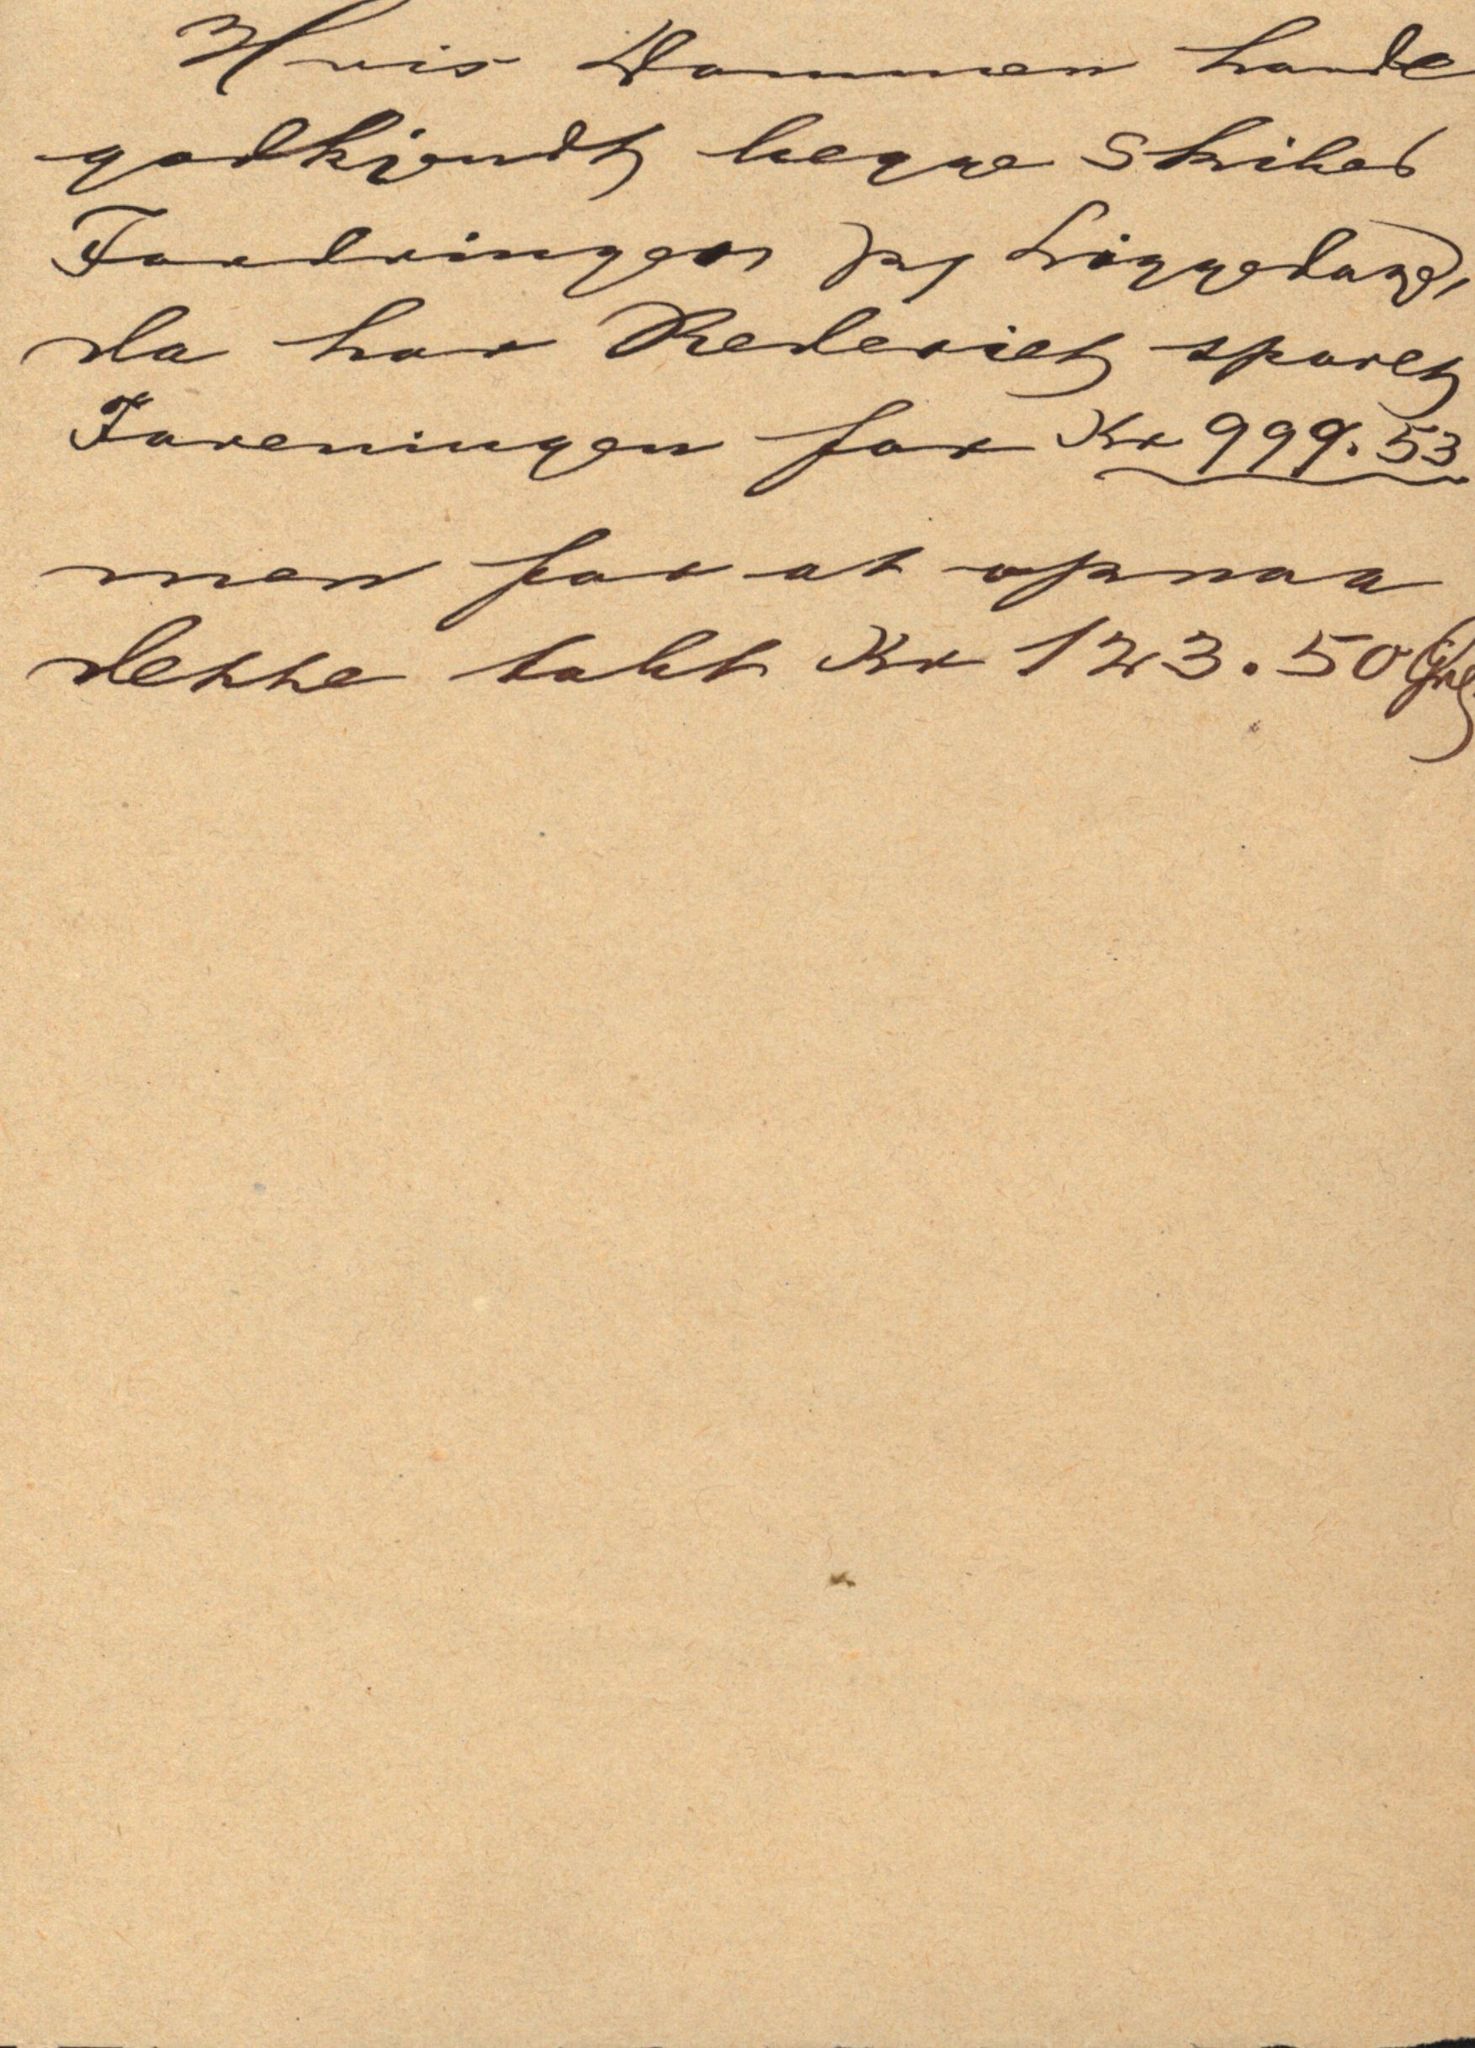 Hvis Dommen havde
godkjendt begge Skibes
Fordringer paa Liggedage,
da har Rederiet sparet
Foreningen for Kr 999.53
men for at opnaa
dette tabt Kr 123.50